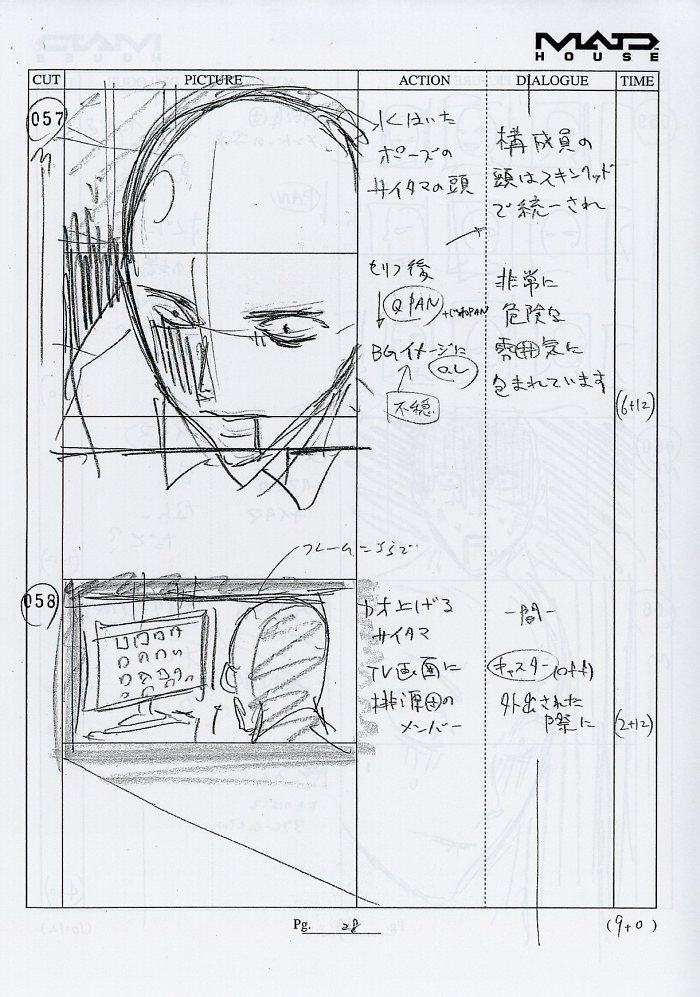 MAD
HOUSE
CUT
PICTURE
ACTION
DIALOGUE
TIME
057
ポーズの
サイタマの頭
構成員の
頭はスキンヘッド
で統一され
セリフ後
Q PAN
BGイメージに
O.L
不穏
非常に
危険な
雰囲気に
包まれています
(6+12)
058
フレーム
サイタマ
TV画面に
桃源団の
メンバー
-間-
キャスター(off)
外出された
際に
(2+12)
Pg. 28
(9+0)